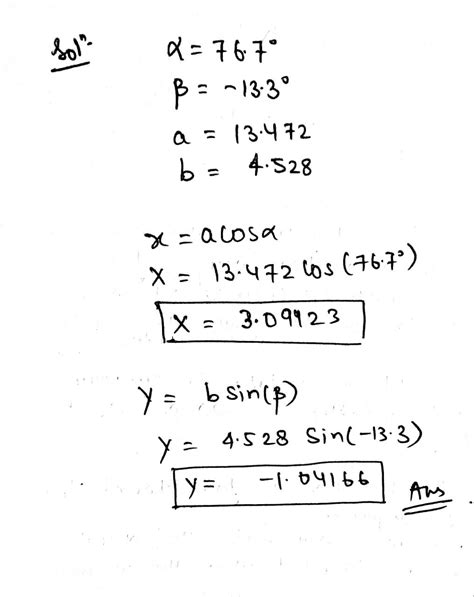 Solⁿ- α = 76.7°
β = -13.3°
a = 13.472
b = 4.528
x = a cosα
X = 13.472 cos (76.7°)
X = 3.09923
Y = b sin(β)
Y = 4.528 Sin(-13.3)
Y = -1.04166 Ans